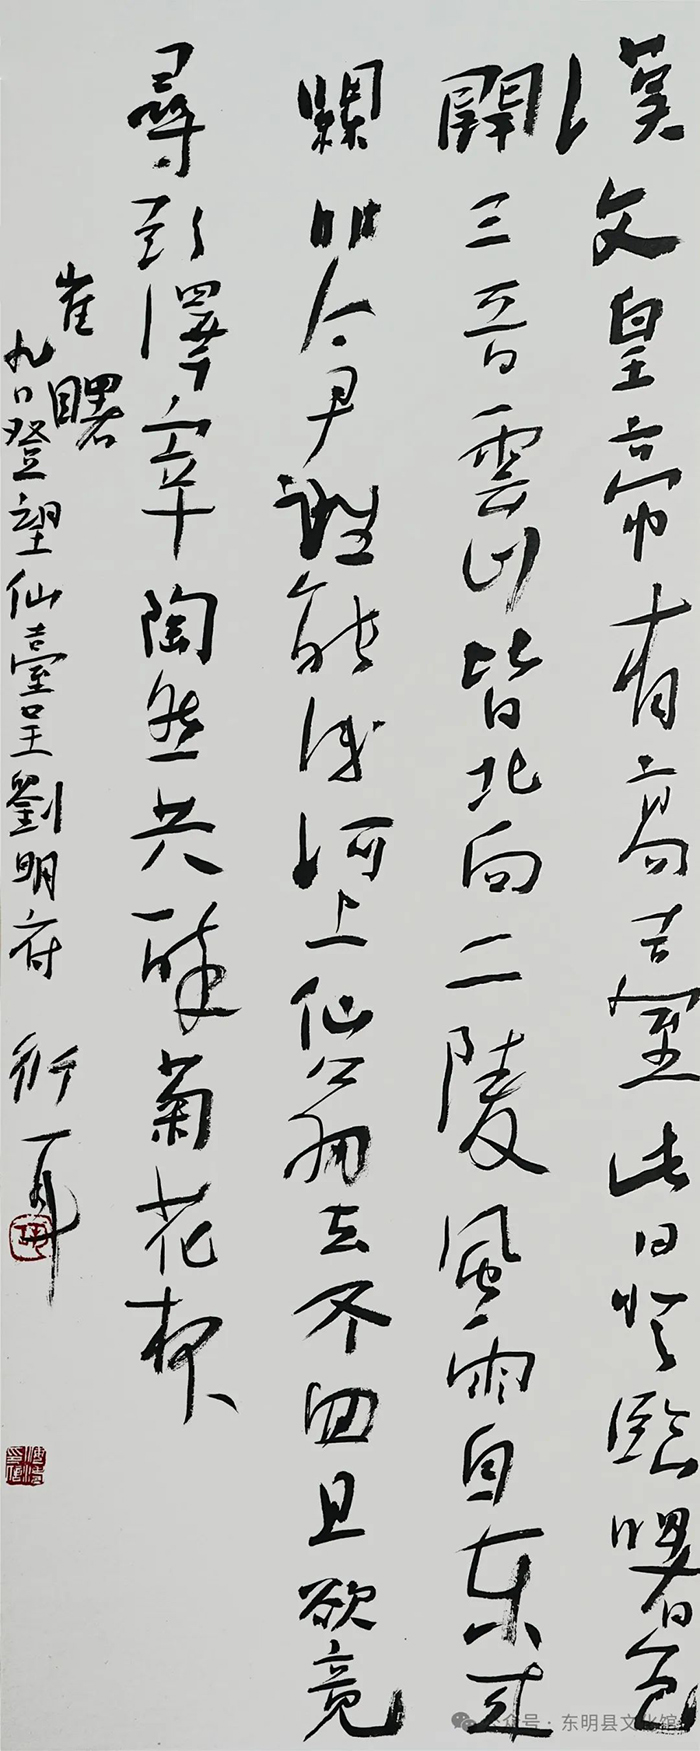 漢文皇帝有高臺此日登臨曙色
開三晉雲山皆北向二陵風雨自東来
關門令尹誰能識河上仙翁去不回且欲竟
尋彭澤宰陶然共醉菊花杯
崔曙
九日登望仙臺呈劉明府
公众号 · 东明县文化馆